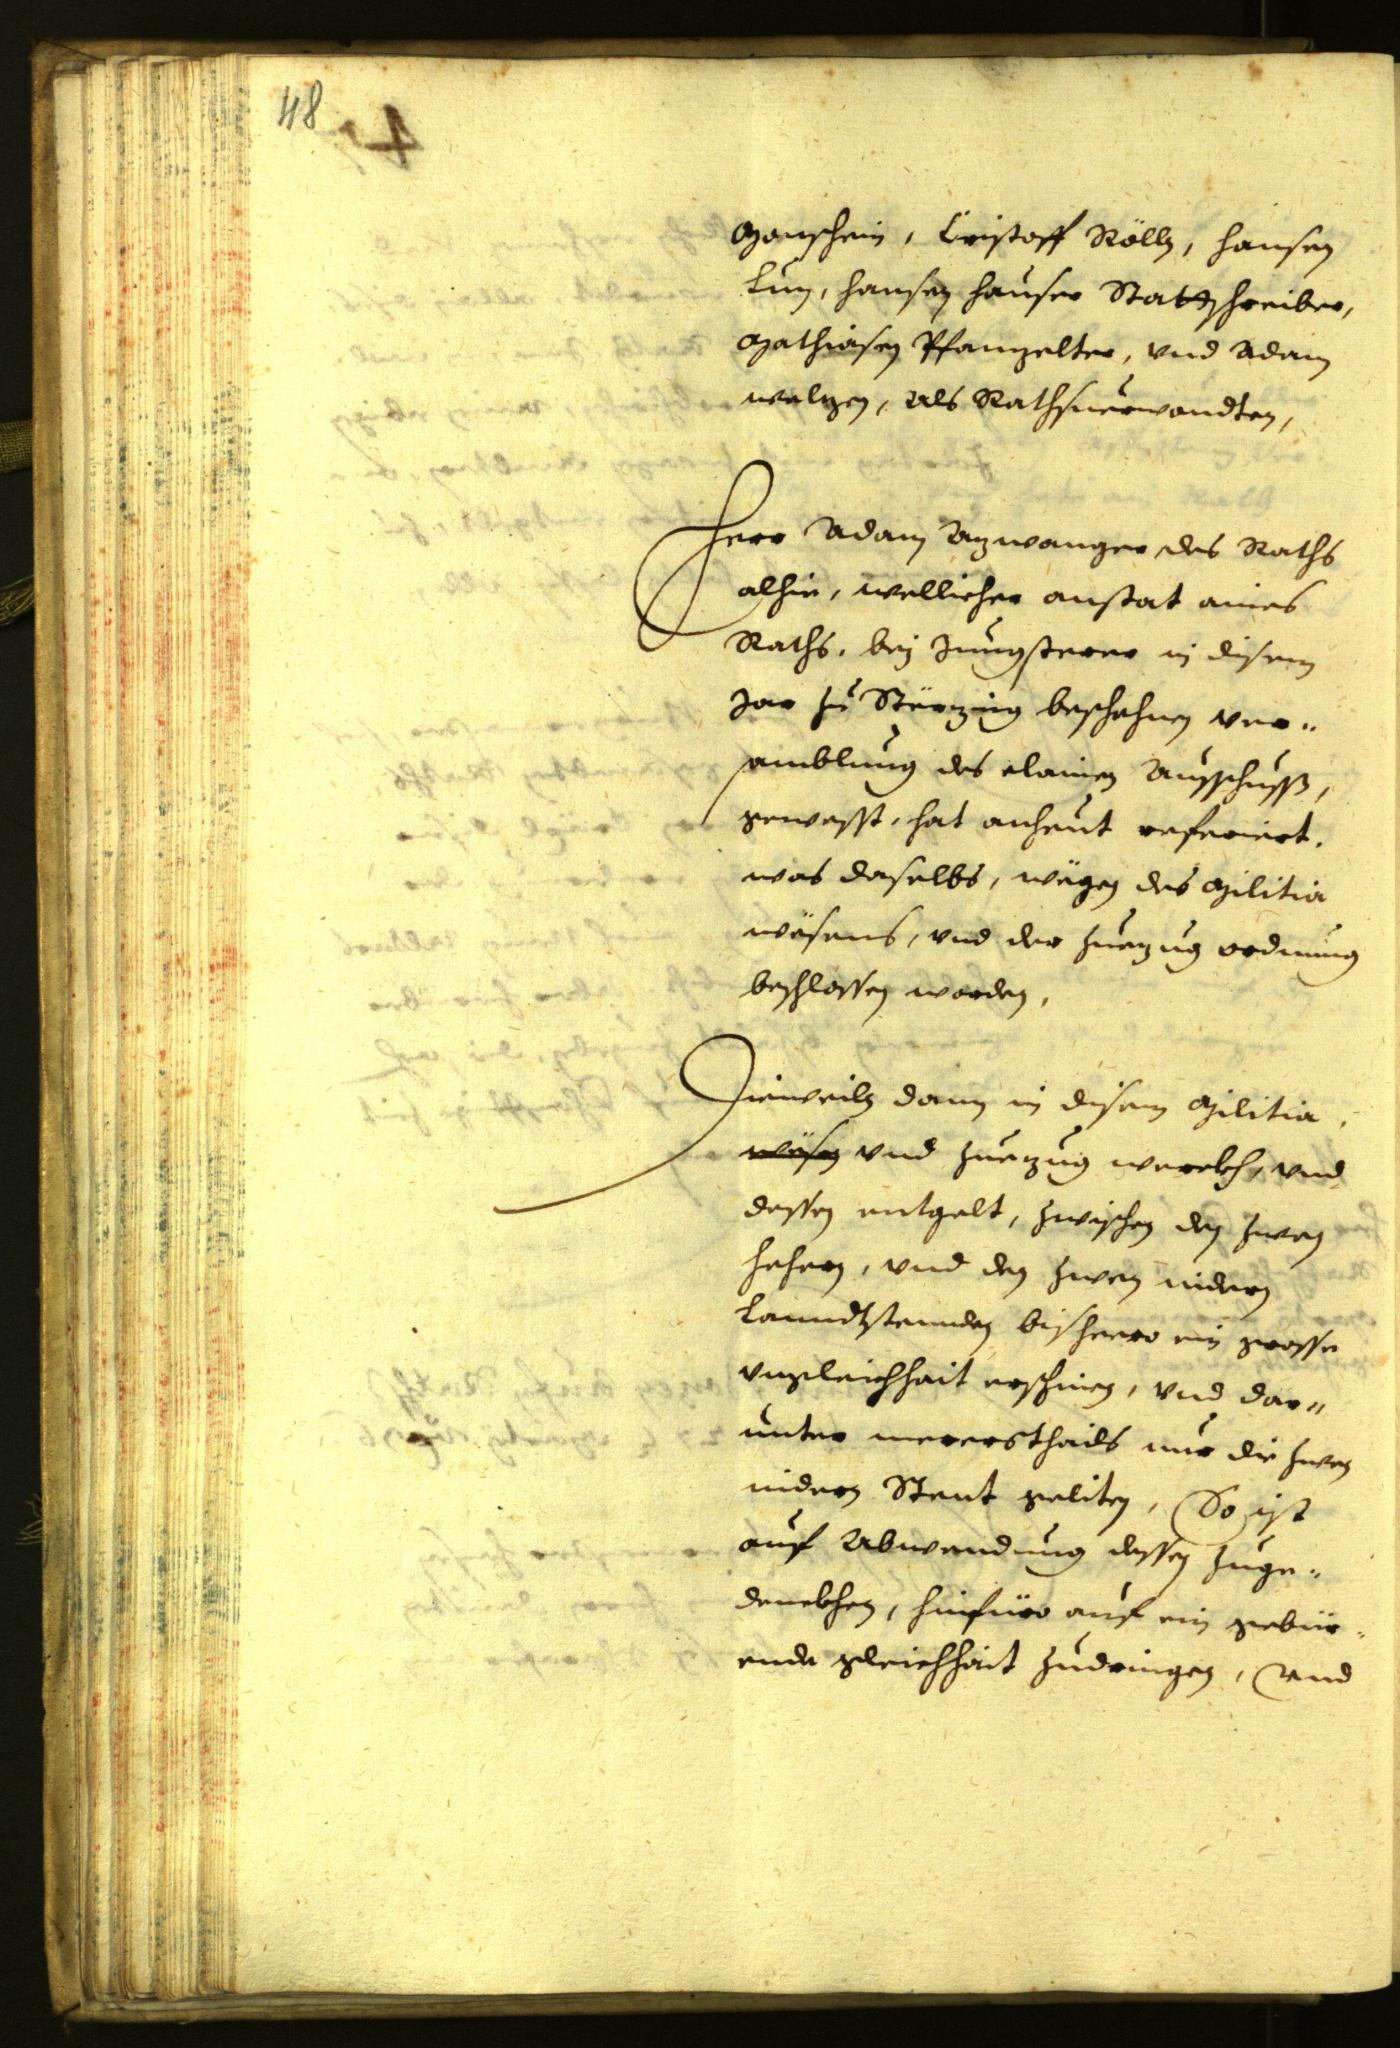 48
Manschein, Cristoff Röllz, hansen
Lun, hansen hauser Statschreiber,
Mathiasen Pfanzelter, vnd Adam
welzen, als Rathsuerwandten,
Herr Adam Azwanger des Raths
alhie, wellicher anstat aines
Raths, bey Jungsterer in disem
Jar zu Störzing beschehnen ver„
samblung des clainen Ausschuss,
gewesst, hat anheut referiert,
was daselbs, wëgen des Militia
wësens, vnd der zuezug ordnung
beschlossen worden,
Dieweilen dann in disem Militia
wësen vnd zuezug werckh, vnd
dessen entgelt, zwischen den zwen
hehern, vnd den zwen nidern
Lanndtstennden bisheero ein grosse
vngleichhait erschinen, vnd dar„
unter mererstthails nur die zwen
nidern Stent geliten, So ist
auf Abwendung dessen zuge„
denckhen, hinfüro auf ein gebür„
ende gleichhait zudringen, Vnd